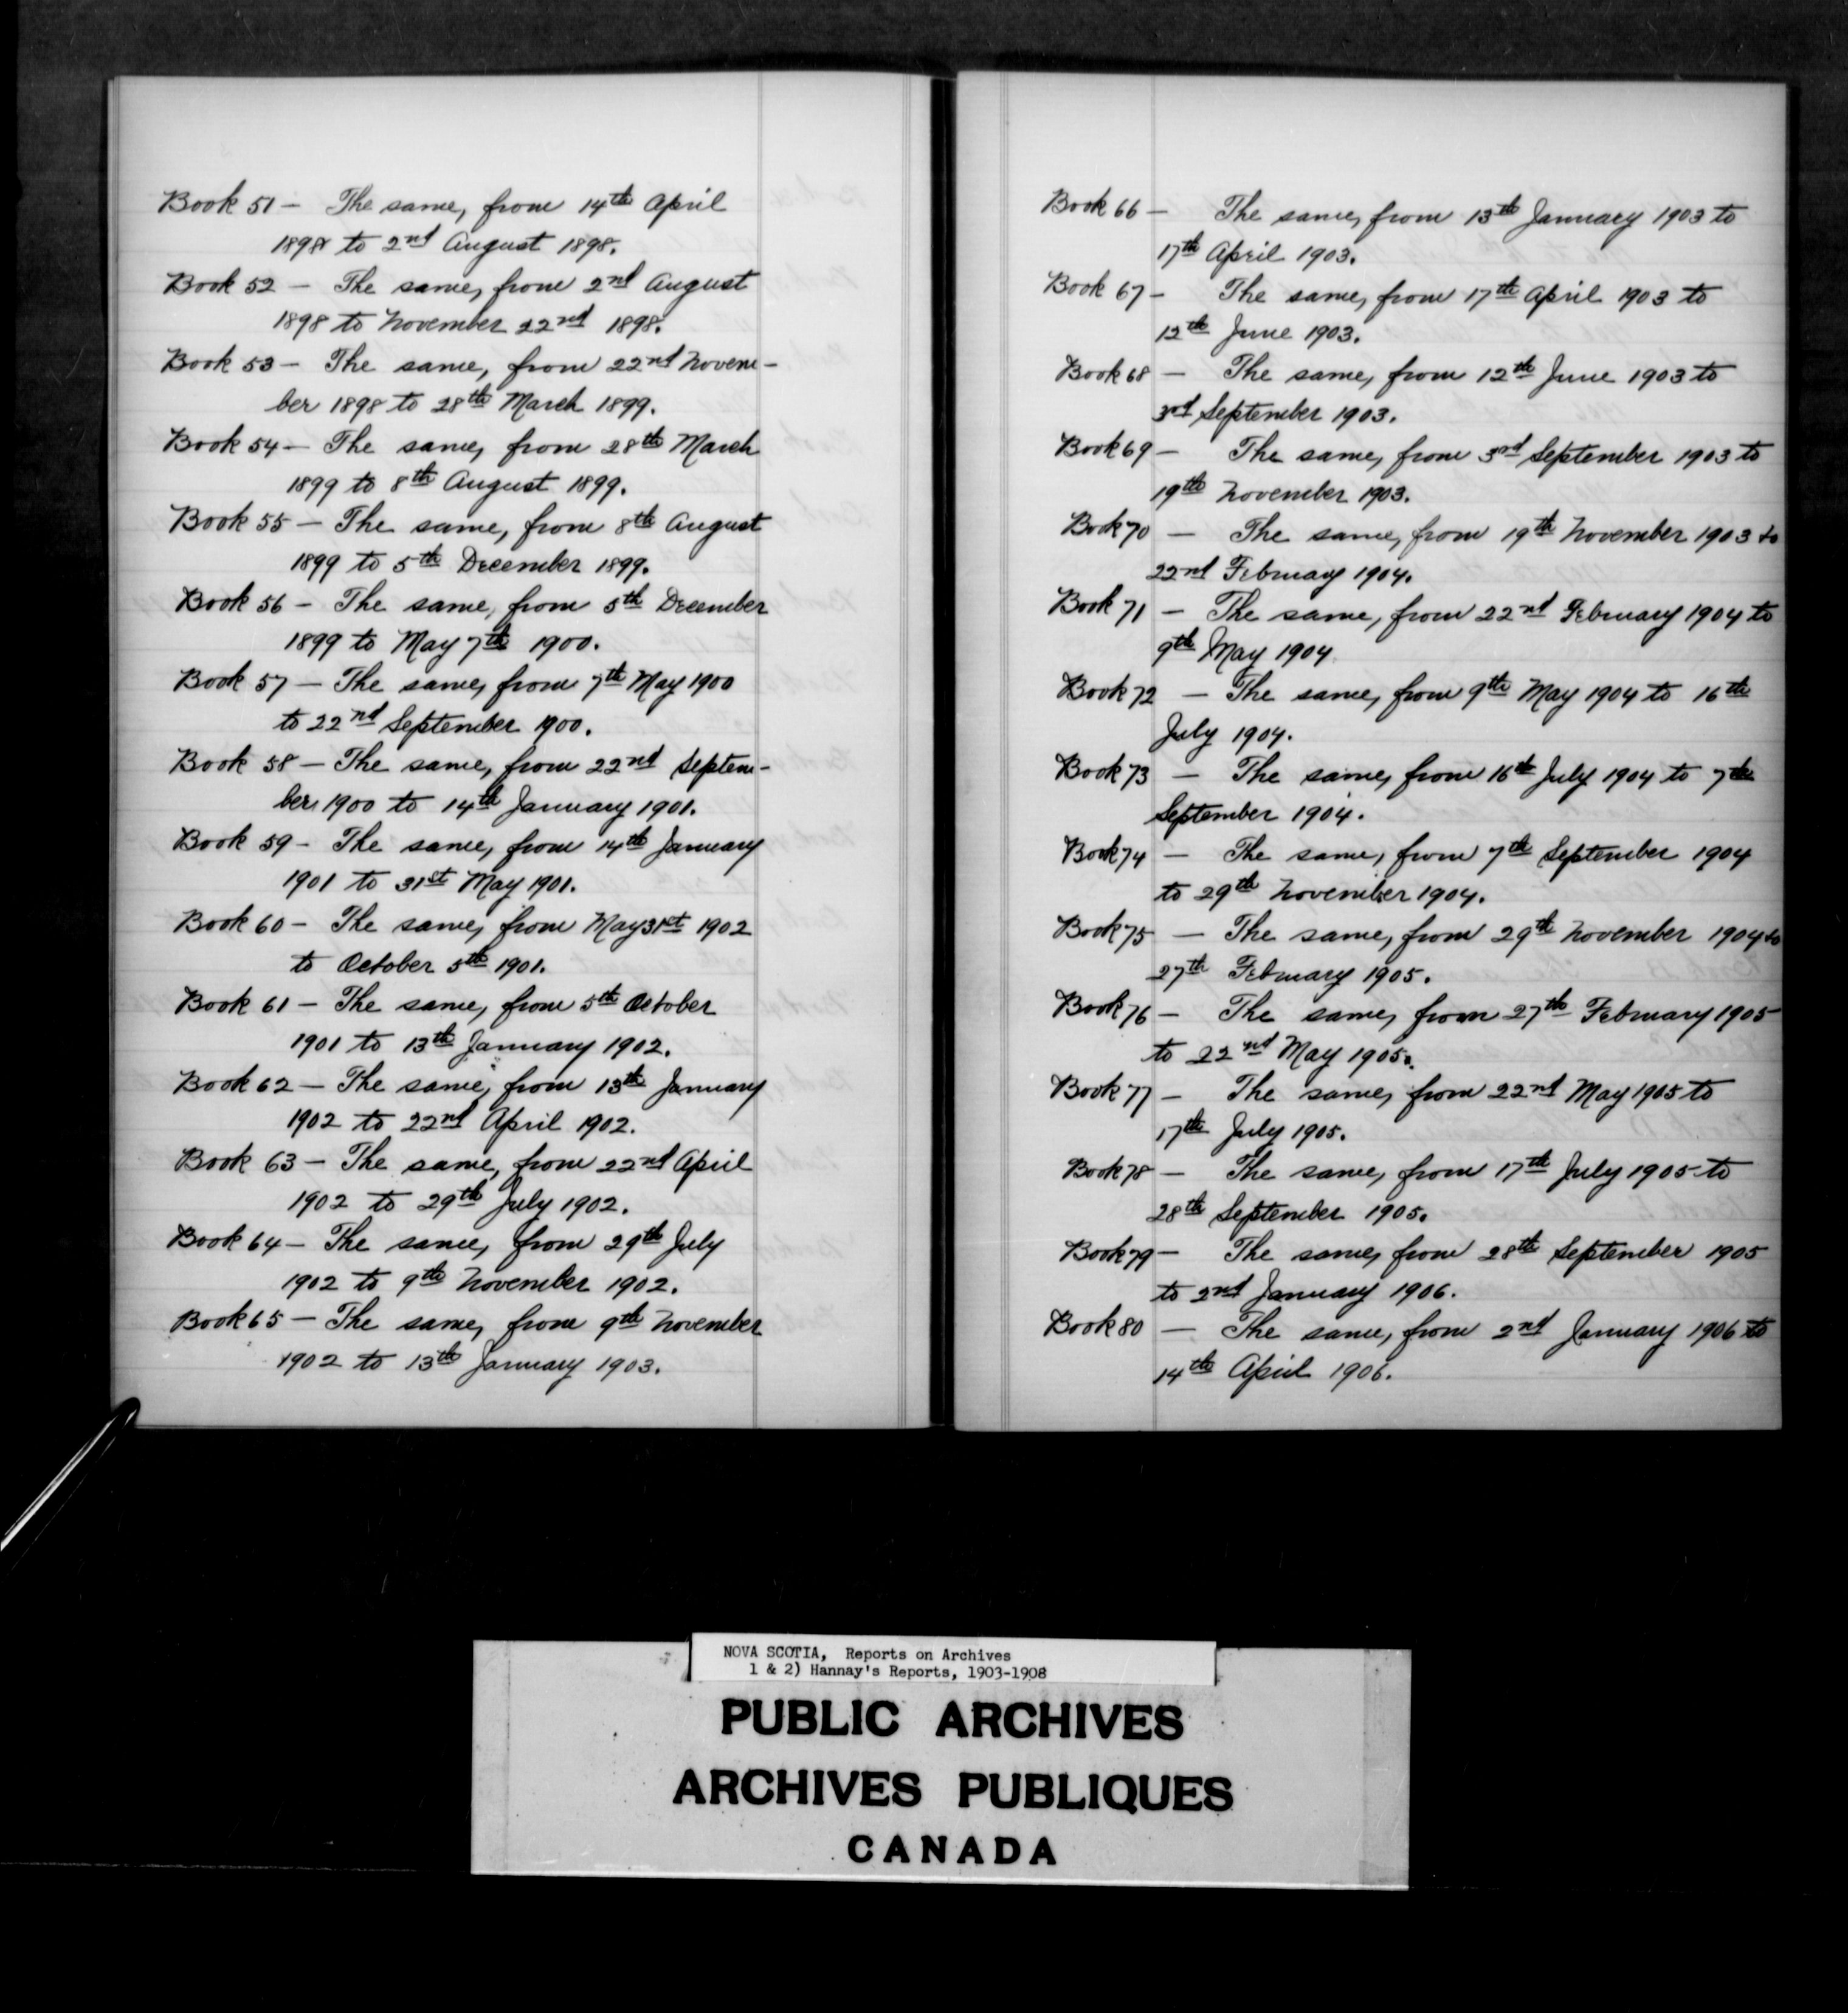 Book 51 — The same, from 14th April
1898 to 2nd August 1898.
Book 52 — The same, from 2nd August
1898 to November 22nd 1898.
Book 53 — The same, from 22nd Novem-
ber 1898 to 28th March 1899.
Book 54 — The same, from 28th March
1899 to 8th August 1899.
Book 55 — The same, from 8th August
1899 to 5th December 1899.
Book 56 — The same, from 5th December
1899 to May 7th 1900.
Book 57 — The same, from 7th May 1900
to 22nd September 1900.
Book 58 — The same, from 22nd Septem-
ber 1900 to 14th January 1901.
Book 59 - The same, from 14th January
1901 to 31st May 1901.
Book 60 - The same, from May 31st 1902
to October 5th 1901.
Book 61 — The same, from 5th October
1901 to 13th January 1902.
Book 62 — The same, from 13th January
1902 to 22nd April 1902.
Book 63 — The same, from 22nd April
1902 to 29th July 1902.
Book 64 — The same, from 29th July
1902 to 9th November 1902.
Book 65 — The same, from 9th November
1902 to 13th January 1903.
Book 66 — The same, from 13th January 1903 to
17th April 1903.
Book 67 — The same, from 17th April 1903 to
12th June 1903.
Book 68 — The same, from 12th June 1903 to
3rd September 1903.
Book 69 — The same, from 3rd September 1903 to
19th November 1903.
Book 70 — The same, from 19th November 1903 to
22nd February 1904.
Book 71 — The same, from 22nd February 1904 to
9th May 1904
Book 72 — The same, from 9th May 1904 to 16th
July 1904.
Book 73 — The same, from 16th July 1904 to 7th
September 1904.
Book 74 — The same, from 7th September 1904
to 29th November 1904.
Book 75 — The same, from 29th November 1904 to
27th February 1905.
Book 76 — The same, from 27th February 1905
to 22nd May 1905.
Book 77 — The same, from 22nd May 1905 to
17th July 1905.
Book 78 — The same, from 17th July 1905 to
28th September 1905.
Book 79 — The same, from 28th September 1905
to 2nd January 1906.
Book 80 — The same, from 2nd January 1906 to
14th April 1906.
NOVA SCOTIA, Reports on Archives
1 & 2) Hannay's Reports, 1903-1908
PUBLIC ARCHIVES
ARCHIVES PUBLIQUES
CANADA